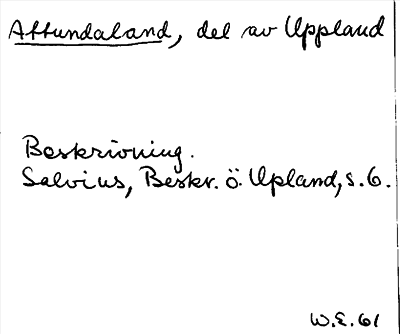 Attundaland, del av Uppland
Beskrivning.
Salvius, Beskr. ö. Upland, s. 6.
W.E. 61